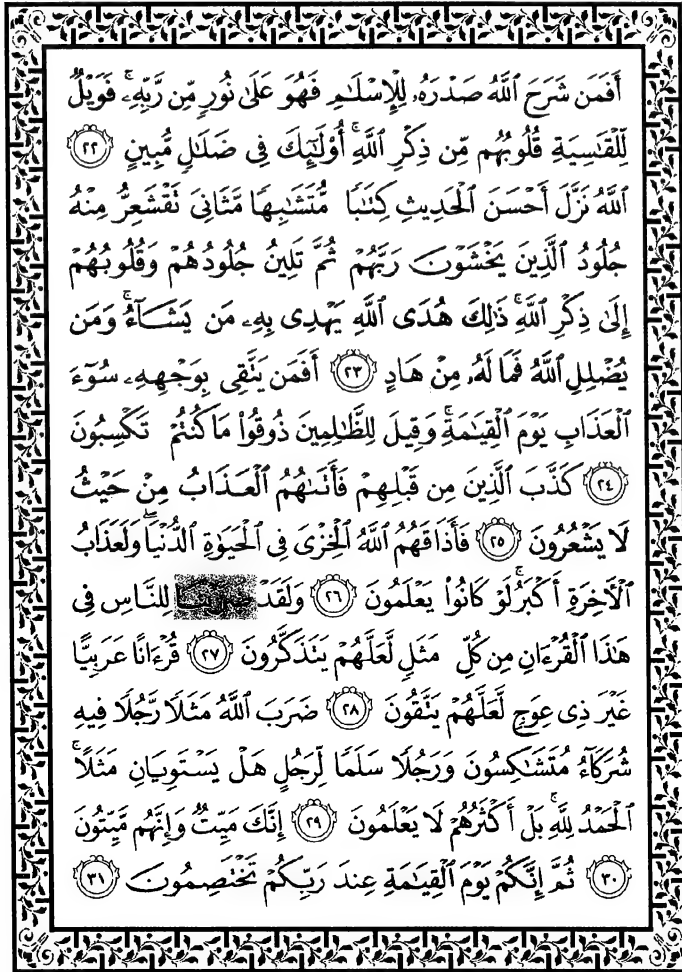 أَفَمَن شَرَحَ ٱللَّهُ صَدْرَهُۥ لِلْإِسْلَٰمِ فَهُوَ عَلَىٰ نُورٍ مِّن رَّبِّهِۦ ۚ فَوَيْلٌ
لِّلْقَٰسِيَةِ قُلُوبُهُم مِّن ذِكْرِ ٱللَّهِ ۚ أُو۟لَٰٓئِكَ فِى ضَلَٰلٍ مُّبِينٍ ٢٢
ٱللَّهُ نَزَّلَ أَحْسَنَ ٱلْحَدِيثِ كِتَٰبًا مُّتَشَٰبِهًا مَّثَانِىَ تَقْشَعِرُّ مِنْهُ
جُلُودُ ٱلَّذِينَ يَخْشَوْنَ رَبَّهُمْ ثُمَّ تَلِينُ جُلُودُهُمْ وَقُلُوبُهُمْ
إِلَىٰ ذِكْرِ ٱللَّهِ ۚ ذَٰلِكَ هُدَى ٱللَّهِ يَهْدِى بِهِۦ مَن يَشَآءُ ۚ وَمَن
يُضْلِلِ ٱللَّهُ فَمَا لَهُۥ مِنْ هَادٍ ٢٣ أَفَمَن يَتَّقِى بِوَجْهِهِۦ سُوٓءَ
ٱلْعَذَابِ يَوْمَ ٱلْقِيَٰمَةِ ۚ وَقِيلَ لِلظَّٰلِمِينَ ذُوقُوا۟ مَا كُنتُمْ تَكْسِبُونَ
٢٤ كَذَّبَ ٱلَّذِينَ مِن قَبْلِهِمْ فَأَتَىٰهُمُ ٱلْعَذَابُ مِنْ حَيْثُ
لَا يَشْعُرُونَ ٢٥ فَأَذَاقَهُمُ ٱللَّهُ ٱلْخِزْىَ فِى ٱلْحَيَوٰةِ ٱلدُّنْيَا ۖ وَلَعَذَابُ
ٱلْءَاخِرَةِ أَكْبَرُ ۚ لَوْ كَانُوا۟ يَعْلَمُونَ ٢٦ وَلَقَدْ لِلنَّاسِ فِى
هَٰذَا ٱلْقُرْءَانِ مِن كُلِّ مَثَلٍ لَّعَلَّهُمْ يَتَذَكَّرُونَ ٢٧ قُرْءَانًا عَرَبِيًّا
غَيْرَ ذِى عِوَجٍ لَّعَلَّهُمْ يَتَّقُونَ ٢٨ ضَرَبَ ٱللَّهُ مَثَلًا رَّجُلًا فِيهِ
شُرَكَآءُ مُتَشَٰكِسُونَ وَرَجُلًا سَلَمًا لِّرَجُلٍ هَلْ يَسْتَوِيَانِ مَثَلًا ۚ
ٱلْحَمْدُ لِلَّهِ ۚ بَلْ أَكْثَرُهُمْ لَا يَعْلَمُونَ ٢٩ إِنَّكَ مَيِّتٌ وَإِنَّهُم مَّيِّتُونَ
٣٠ ثُمَّ إِنَّكُمْ يَوْمَ ٱلْقِيَٰمَةِ عِندَ رَبِّكُمْ تَخْتَصِمُونَ ٣١